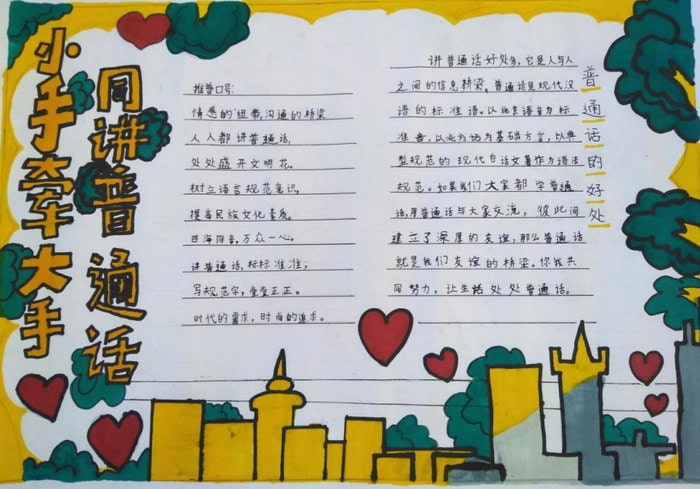 小手牵大手
同讲普通话
推普口号:
情感的纽带,沟通的桥梁
人人都讲普通话,
处处盛开文明花。
树立语言规范意识,
提高民族文化素质。
四海同音,万众一心。
讲普通话,标标准准;
写规范字,堂堂正正。
时代的需求,时尚的追求。
普通话的好处
讲普通话好处多,它是人与人
之间的信息桥梁。普通话是现代汉
语的标准语。以北京语音为标
准音,以北方话为基础方言,以典
型规范的现代白话文著作为语法
规范。如果我们大家都学普通
话,用普通话与大家交流,彼此间
建立了深厚的友谊,那么普通话
就是我们友谊的桥梁。你我共
同努力,让生活处处普通话。